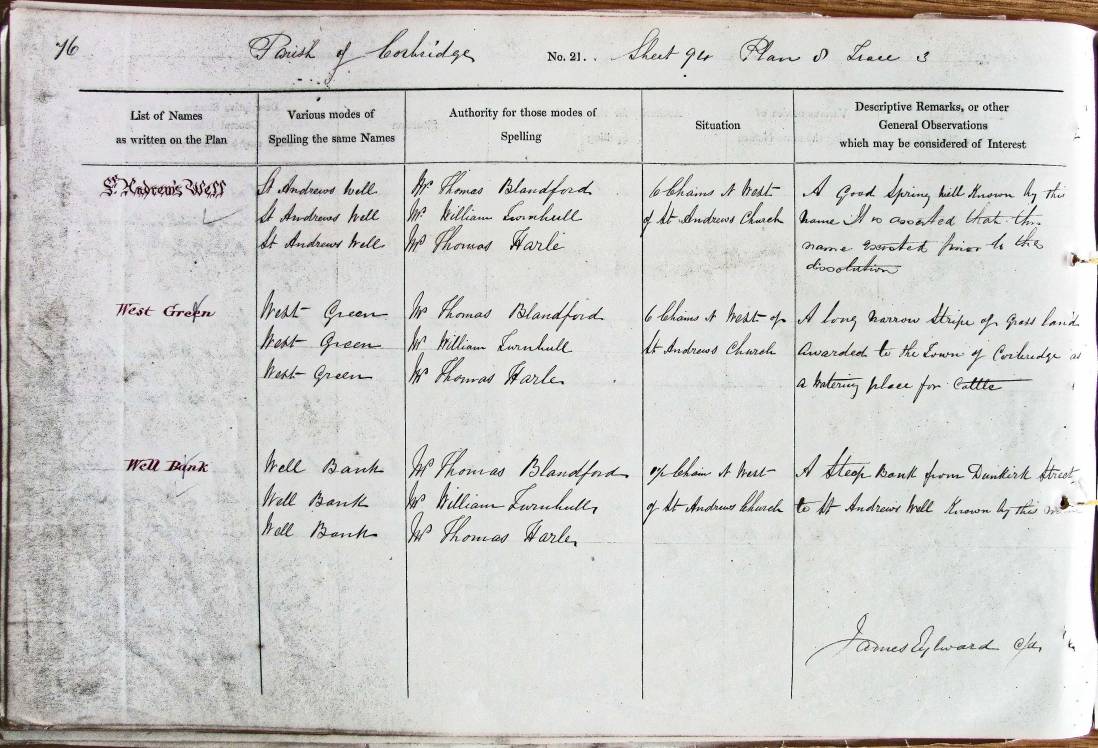 76 Parish of Corbridge No. 21. Sheet 94 Plan 8 Trace 3
List of Names
as written on the Plan
Various modes of
Spelling the same Names
Authority for those modes of
Spelling
Situation
Descriptive Remarks, or other
General Observations
which may be considered of Interest
St. Andrew's Well
St Andrews Well
St Andrews Well
St Andrews Well
Mr Thomas Blandford
Mr William Turnbull
Mr Thomas Harle
6 Chains N West
of St Andrews Church
A Good Spring well Known by this
name It is asserted that this
name existed prior to the
dissolution
West Green
West Green
West Green
West Green
Mr Thomas Blandford
Mr William Turnbull
Mr Thomas Harle
6 Chains N West of
St Andrews Church
A long narrow Stripe of Grass land
awarded to the Town of Corbridge as
a Watering place for Cattle
Well Bank
Well Bank
Well Bank
Well Bank
Mr Thomas Blandford
Mr William Turnbull
Mr Thomas Harle
Chain N West
of St Andrews Church
A Steep Bank from Dunkirk Street
to St Andrews Well Known by this name
James Aylward c/a